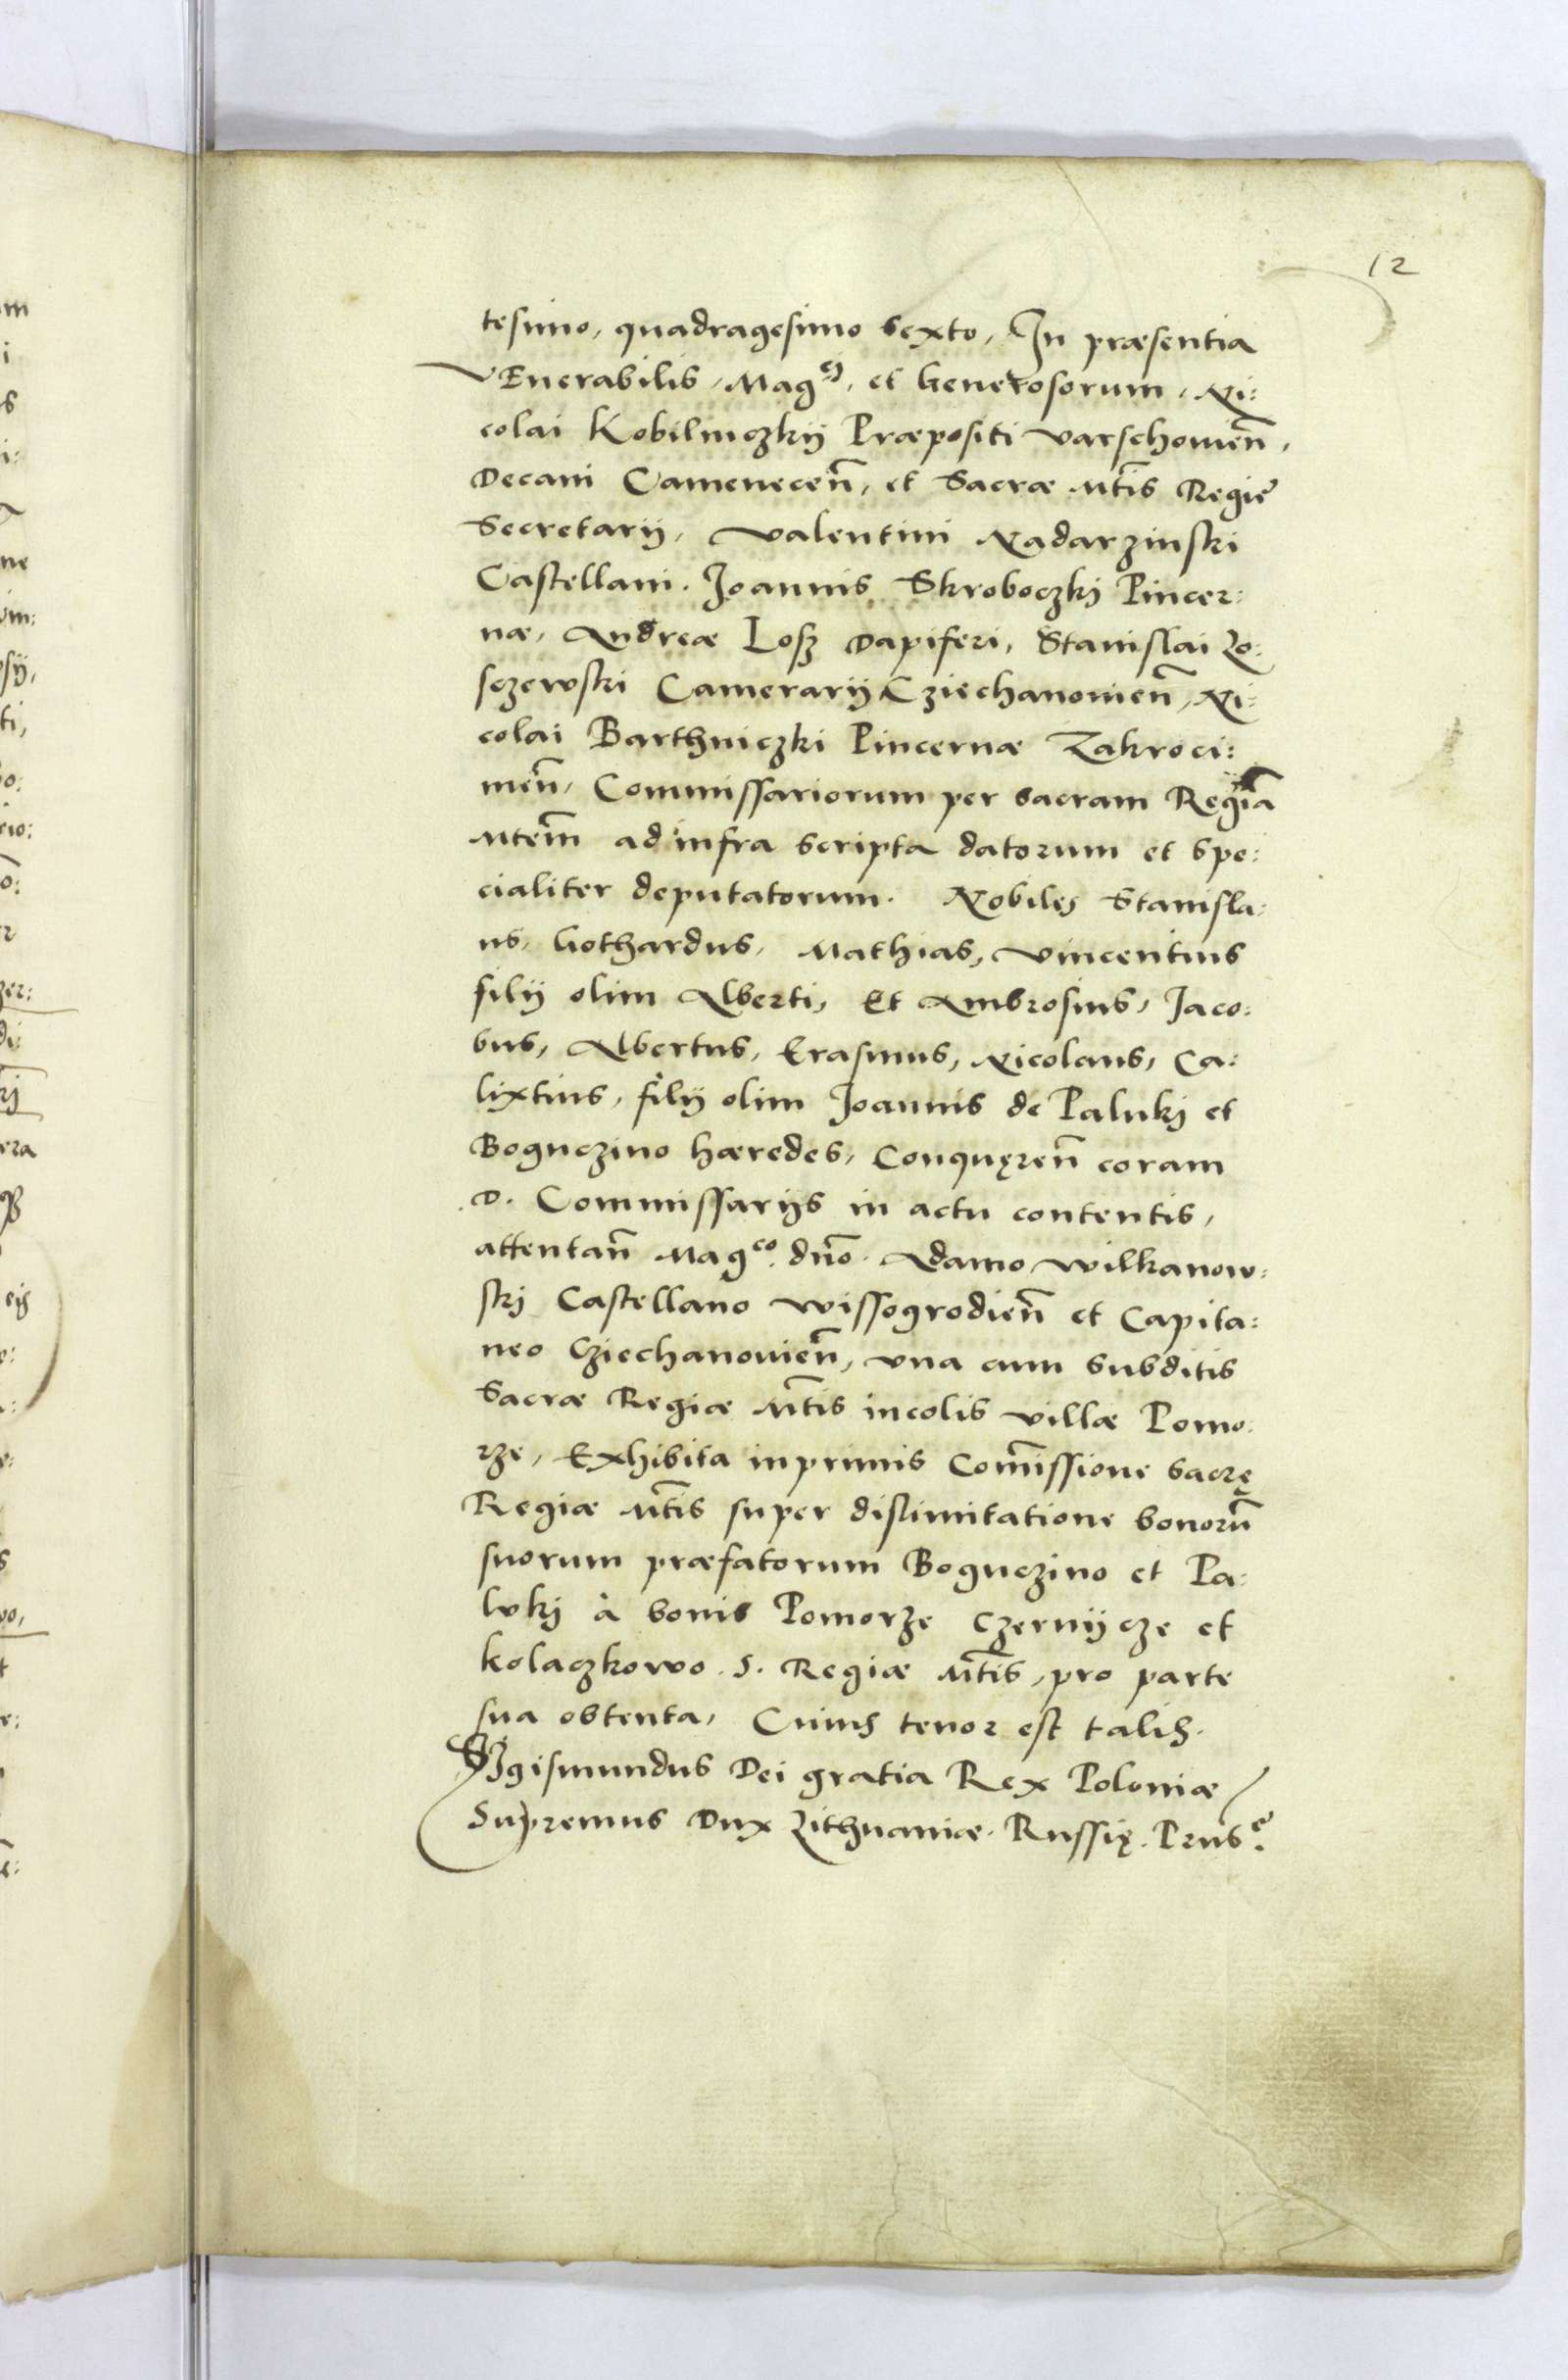 12
tesimo, quadragesimo sexto, In præsentia
VEnerabilis, Mag^ci, et Generosorum, Ni:
colai Kobilniczkij Præpositi Varschouieñ,
Decani Cameneceñ, et Sacræ Mt̃is Regie
Secretarij, Valentini Nadarzinski
Castellani. Joannis Skroboczkj Pincer:
næ, Andreæ Losz Dapiferi, Stanislai Zo:
sczewski Camerarij Cziechanouieñ, Ni:
colai Barthniczki Pincernæ Zakroci:
meñ, Commissariorum per sacram Regiã
Mtem̃ ad infra scripta datorum et spe:
cialiter deputatorum. Nobiles Stanisla:
us, Gothardus, Mathias, Vincentius
filij olim Alberti, Et Ambrosius, Jaco:
bus, Albertus, Erasmus, Nicolaus, Ca:
lixtius, filij olim Joannis de Palukj et
Boguczino hæredes, Conquęreñ coram
D. Commissarijs in actu contentis,
attentañ Mag^co. dño. Adamo Wilkanow:
skj Castellano Wissogrodieñ et Capita:
neo Cziechanouieñ, vna cum subditis
Sacræ Regiæ Mt̃is incolis villæ Pomo:
rze, Exhibita inprimis Com̃issione sacrę
Regiæ Mt̃is super dislimitatione bonorũ
suorum præfatorum Boguczino et Pa:
lukj à bonis Pomorze Czernijcze et
kolaczkowo. S. Regiæ Mt̃is, pro parte
sua obtenta, Cuius tenor est talis.
SIgismundus Dei gratia Rex Poloniæ
Supremus Dux Lithuaniæ. Russię. Prus^e.